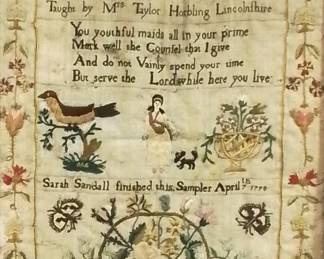 Taught by Mrs Taylor Horbling Lincolnshire
You youthful maids all in your prime
Mark well the Counsel that I give
And do not Vainly spend your time
But serve the Lord while here you live
Sarah Sandall finished this Sampler April